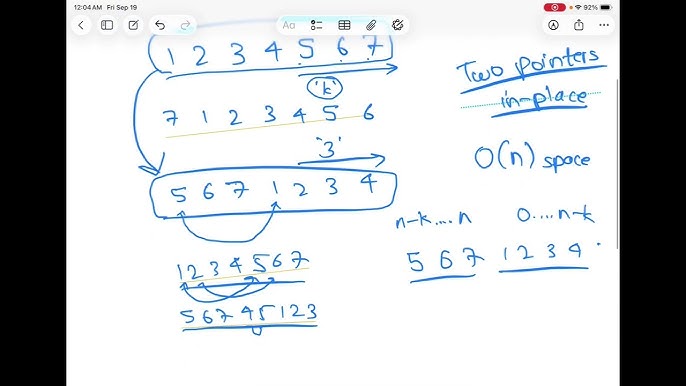 12:04 AM Fri Sep 19
92%
Aa
1 2 3 4 5 6 7
'k'
7 1 2 3 4 5 6
'3'
5 6 7 1 2 3 4
1 2 3 4 5 6 7
5 6 7 4 5 1 2 3
Two pointers
in-place
O(n) space
n-k....n 0....n-k
5 6 7 1 2 3 4